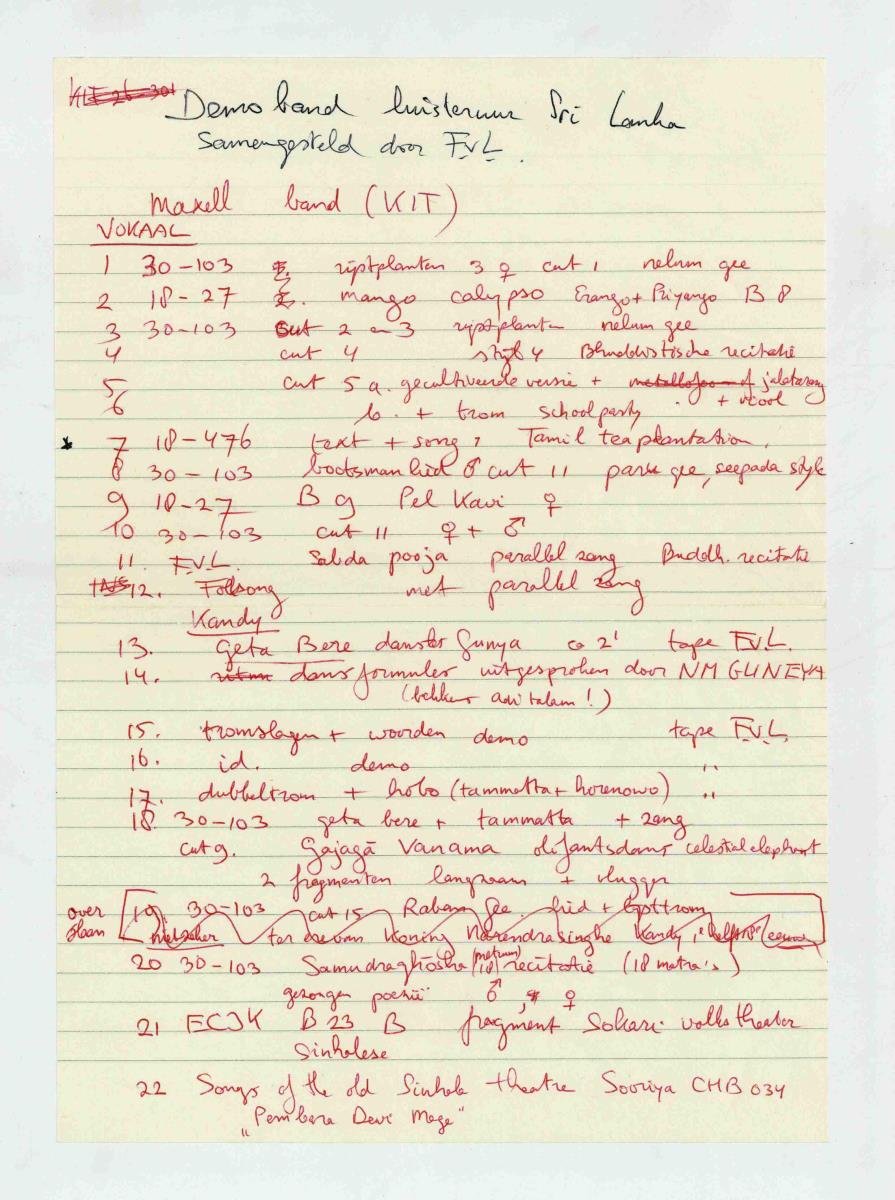 Demo band luistermuur Sri Lanka
Samengesteld door F.v.L.
Maxell band (KIT)
VOKAAL
1 30-103 rijstplanten 3 ♀ cut 1 nelum gee
2 18-27 mango calypso Erango + Priyango B 8
3 30-103 cut 2 en 3 rijstplanten nelum gee
4 cut 4 stijl 4 Bhuddistische recitatie
5 cut 5 a. gecultiveerde versie + jalatarang
6 b. + trom schoolparty + viool
7 18-476 text + song, Tamil teaplantation.
8 30-103 bootsman lied ♂ cut 11 paru gee, seepada style
9 18-27 B 9 Pel Kavi ♀
10 30-103 cut 11 ♀ + ♂
11. F.v.L. Sabda pooja parallel zang Buddh. recitatie
12. Folksong met parallel zang
Kandy
13. geta Bere danster Gunya ca 2' tape F.v.L.
14. dans formules uitgesproken door NM GUNEYA
(bekken adi talam!)
15. tromslagen + woorden demo tape F.v.L.
16. id. demo ,,
17. dubbeltrom + hobo (tammatta + horenawo) ,,
18. 30-103 geta bere + tammatta + zang
cut 9. Gajagā Vanama olifantsdans celestial elephant
2 fragmenten langzaam + vlugger
over 19. 30-103 cut 15 Raban Gee. lied +
slaan ter ere van Koning Narendrasinghe Kandy, 1e helft 18e eeuw
20 30-103 Samudraghōsha (metrum) (18) recitatie (18 matra's)
gezongen poëzie ♂, ♀
21 ECJK B 23 B fragment Sokari volkstheater
Sinhalese
22 Songs of the old Sinhala theatre Sooriya CHB 034
„Pembara Devi Mage"